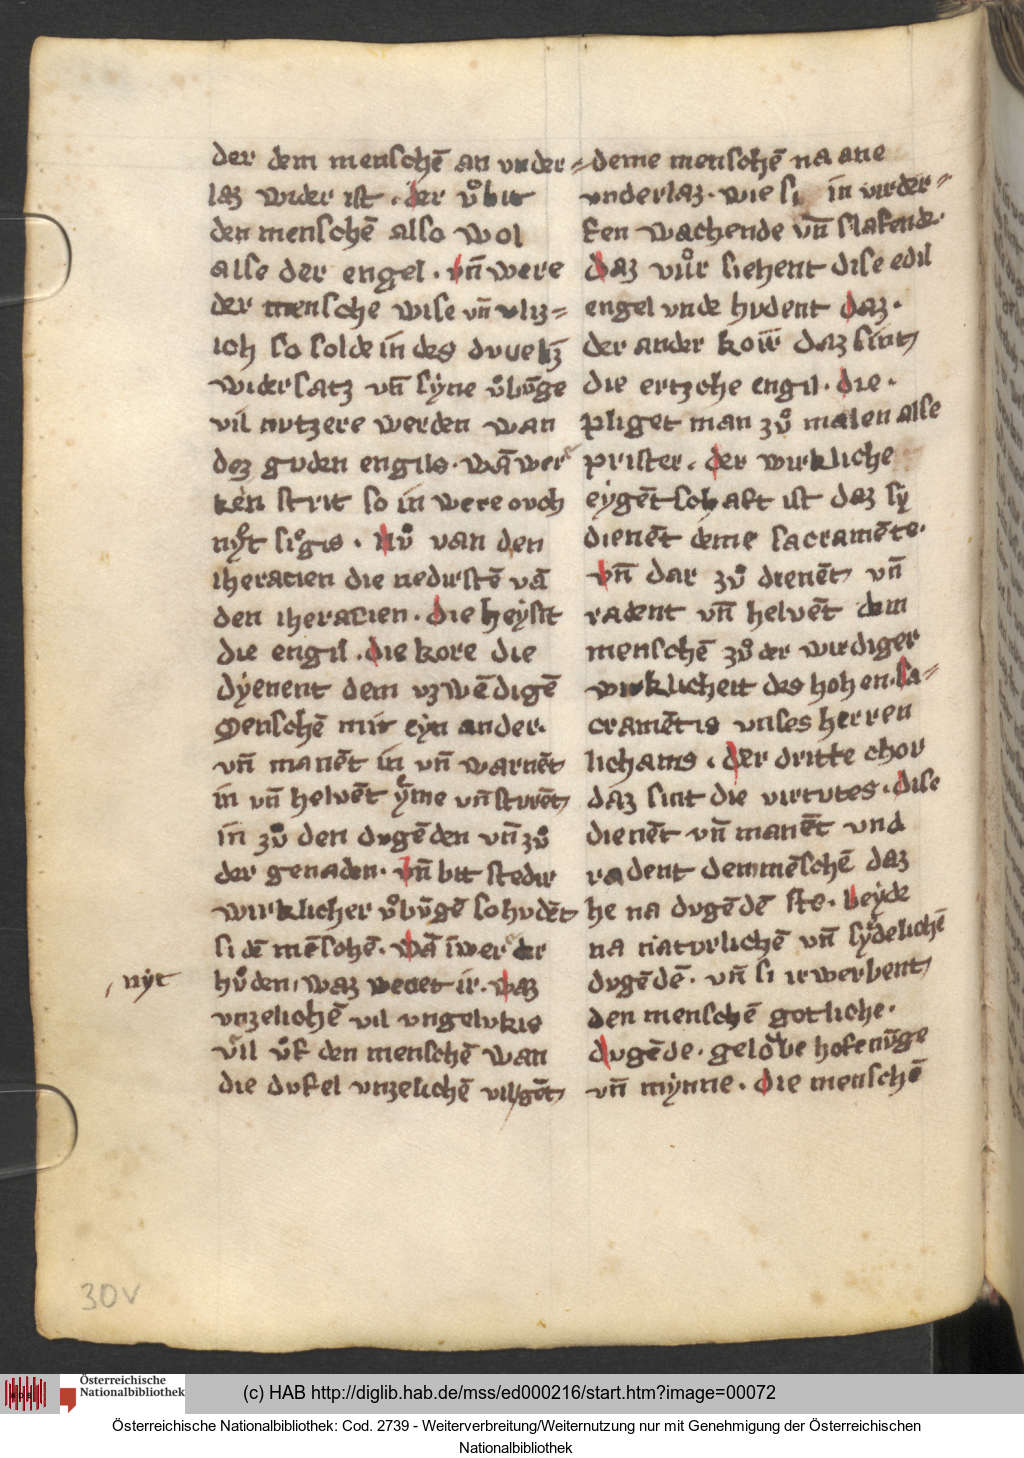 der dem menschē an vnder⸗
laz wider ist . der vͦbit
den menschē also wol
alse der engel . vn̄ were
der mensche wise vn̄ vliz⸗
ich so solde in des duuelz
widersatz vn̄ syne vͦbūge
vil nutzere werden wan
dez guden engils . wā wer
ken strit so in were ouch
nyͤt sigͦis . nvͦ van den
iheracien die nedirstē vā
den iheracien . die heysit
die engil . die kore die
dyenent dem vzwēdigē
menschē mit eyn ander .
vn̄ manēt in vn̄ warnēt
in vn̄ helvēt yͤme vn̄ sturēt
in zvͦ den dugēden vn̄ zvͦ
der genaden . vn̄ bit stedir
wirklicher vͦbūgē so hudēt
si dē mēschē . wā īwer dir
nyt
hvͦden, waz wenet ir . waz
vnzelichē vil vngelukis
viͤl vͦf den menschē wan
die dufel vnzelichē vilgēt
deme menschē na ane
vnderlaz . wie si in virder⸗
ken wachende vn̄ slafende .
daz vuͦr siehent dise edil
engel vnde hudent daz .
der ander koir daz sint
die ertzche engil . die .
pliget man zvͦ malen alse
prister . der wirkliche
eygētschaft ist daz sy
dienēt deme sacramēte .
vn̄ dar zvͦ dienēt vn̄
radent vn̄ helvēt dem
menschē zvͦ der wirdiger
wirklicheit des hohen . sa⸗
cramētis vnses herren
lichams . der dritte chor
daz sint die virtutes . dise
dienēt vn̄ manēt vnd
radent dem mēschē daz
he na dugēdē ste . beyde
na naturlichē vn̄ syͤdelichē
dugēdē . vn̄ si irwerbent
den menschē gotliche .
dugēde . geloͮbe hofenūge
vn̄ mynne . die menschē
30v
Österreichische
Nationalbibliothek
(c) HAB http://diglib.hab.de/mss/ed000216/start.htm?image=00072
Österreichische Nationalbibliothek: Cod. 2739 - Weiterverbreitung/Weiternutzung nur mit Genehmigung der Österreichischen
Nationalbibliothek